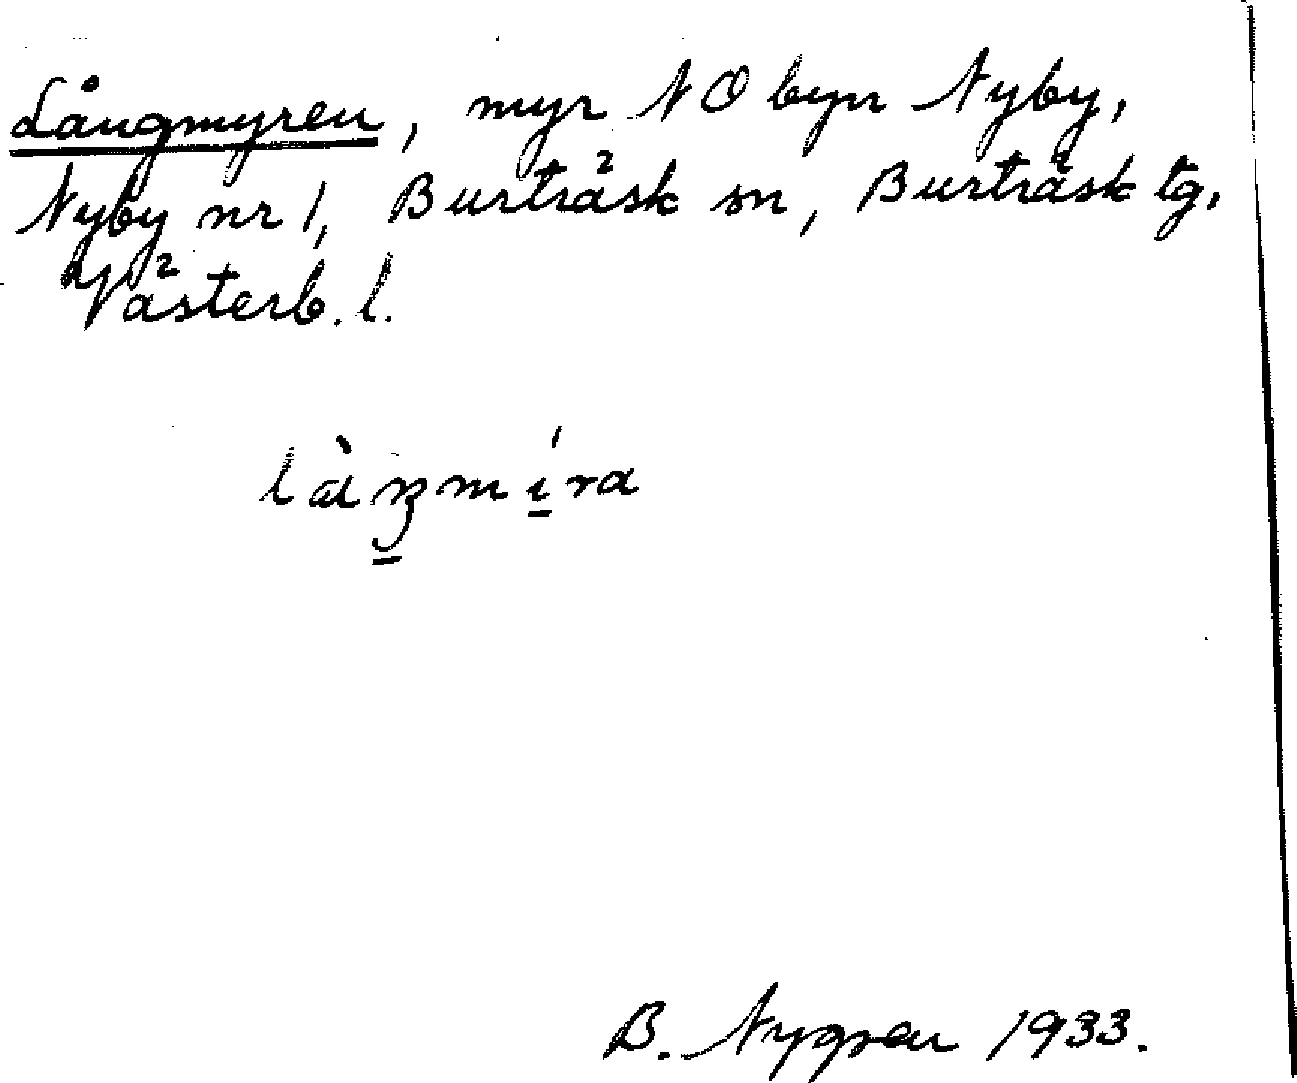 Långmyren, myr NO byn Nyby,
Nyby nr 1, Burträsk sn, Burträsk tg,
Västerb. l.
B. Nygren 1933.